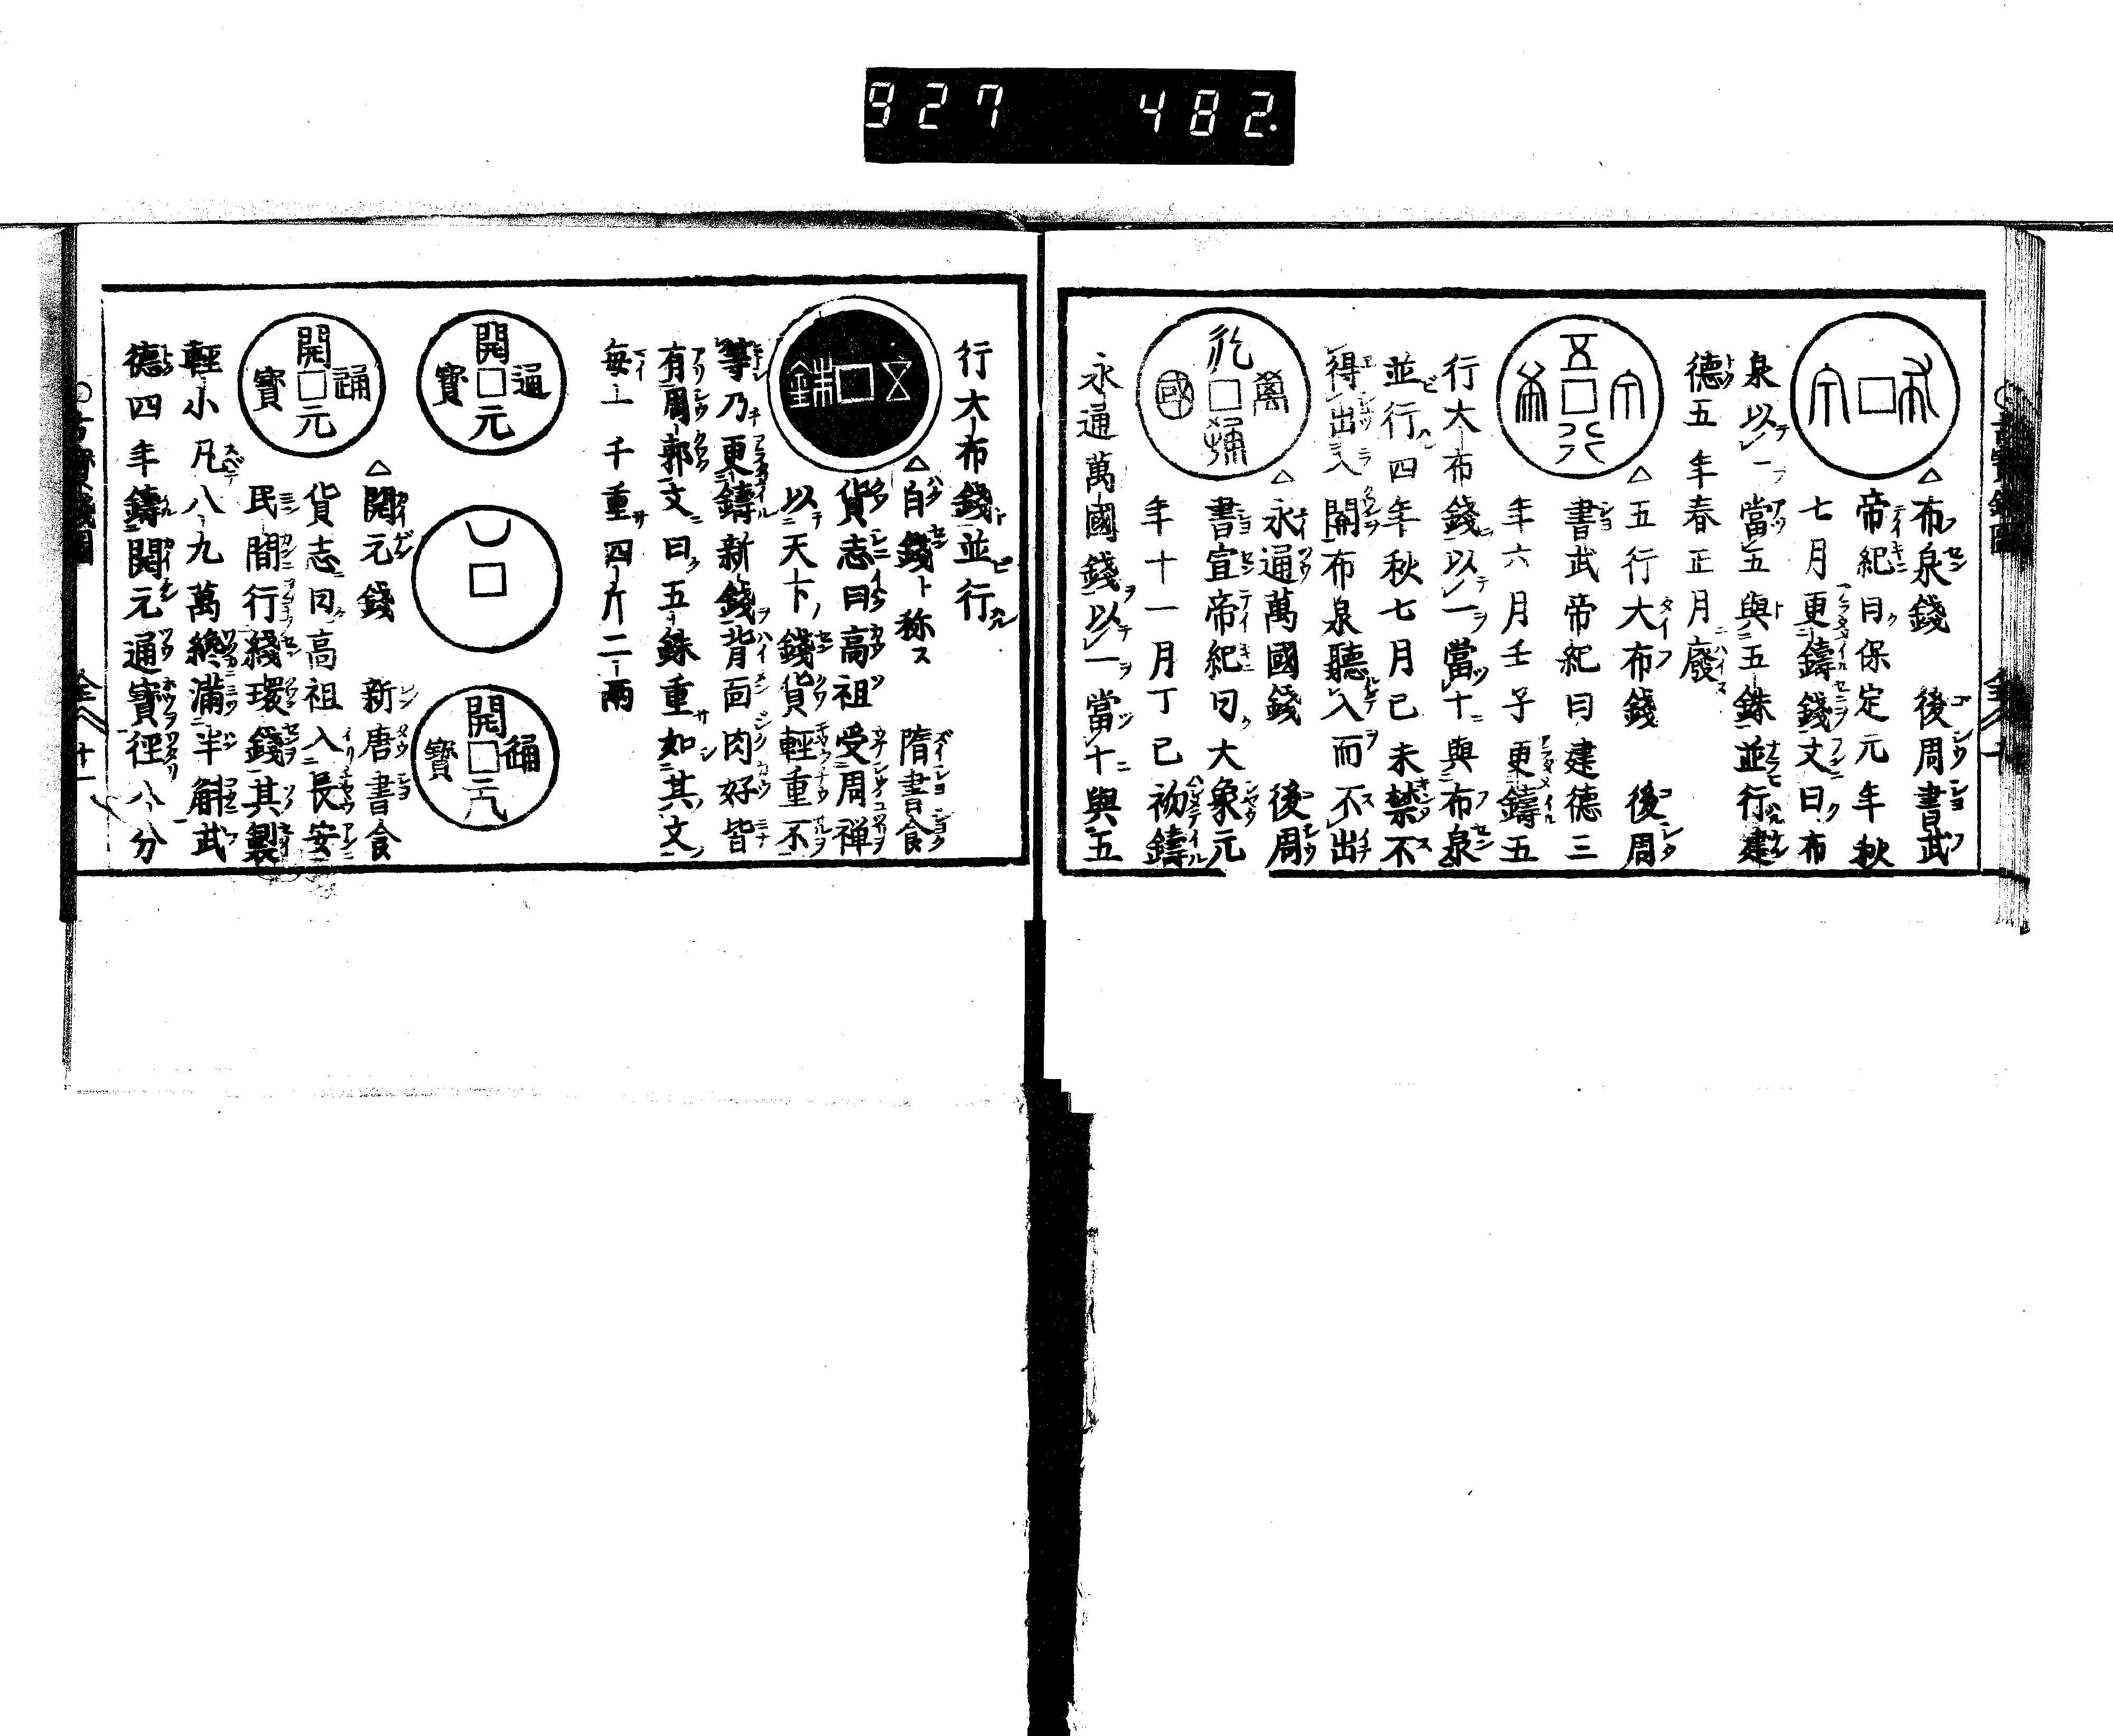 927 482.
△布泉錢 後周書武
帝紀曰保定元年秋
七月更鑄錢文曰布
泉以一當五與五銖並行建
德五年春正月廢
五行大布
△五行大布錢 後周
書武帝紀曰建德三
年六月壬子更鑄五
行大布錢以一當十與布泉
並行四年秋七月己未禁不
得出入關布泉聽入而不出
永通萬國
△永通萬國錢 後周
書宣帝紀曰大象元
年十一月丁巳初鑄
永通萬國錢以一當十與五
行大布錢並行
五銖
△白錢ト称ス 隋書食
貨志曰高祖受周禅
以天下錢貨輕重不
等乃更鑄新錢背面肉好皆
有周郭文曰五銖重如其文
每一千重四斤二兩
開元通寶
開元通寶
開元通寶
△開元錢 新唐書食
貨志曰高祖入長安
民間行綫環錢其製
輕小凡八九萬纔滿半斛武
德四年鑄開元通寶徑八分
全 十一